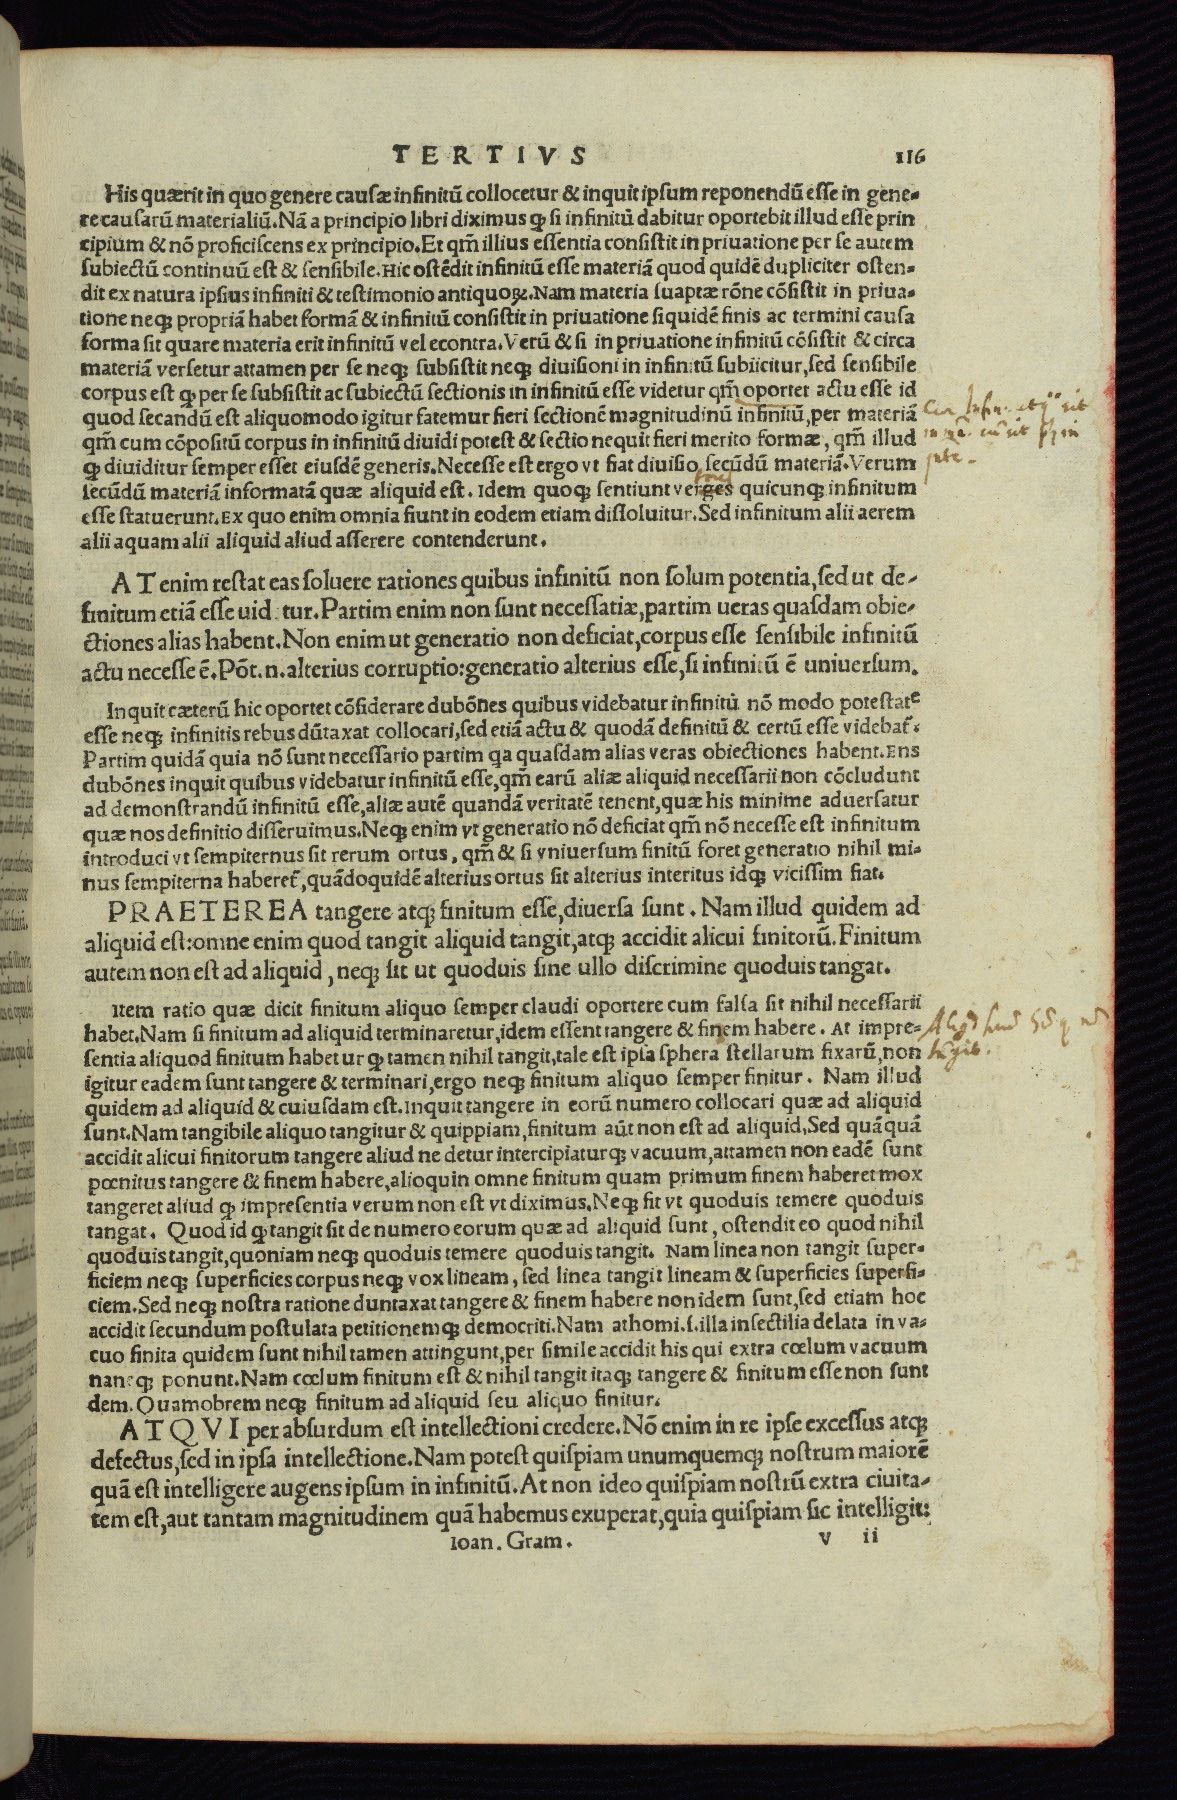 TERTIVS 116
His quærit in quo genere causæ infinitũ collocetur & inquit ipsum reponendũ esse in gene-
re causarũ materialiũ. Nã a principio libri diximus ꝙ si infinitũ dabitur oportebit illud esse prin
cipium & nõ proficiscens ex principio. Et qm̃ illius essentia consistit in priuatione per se autem
subiectũ continuũ est & sensibile. Hic ostẽdit infinitũ esse materiã quod quidẽ dupliciter osten-
dit ex natura ipsius infiniti & testimonio antiquoꝝ. Nam materia suaptæ rõne cõsistit in priua-
tione neqꝫ propriã habet formã & infinitũ consistit in priuatione siquidẽ finis ac termini causa
forma sit quare materia erit infinitũ vel econtra. Verũ & si in priuatione infinitũ cõsistit & circa
materiã versetur attamen per se neqꝫ subsistit neqꝫ diuisioni in infinitũ subiicitur, sed sensibile
corpus est ꝙ per se subsistit ac subiectũ sectionis in infinitũ esse videtur qm̃ oportet actu esse id
quod secandũ est aliquomodo igitur fatemur fieri sectionẽ magnitudinũ infinitũ, per materiã
qm̃ cum cõpositũ corpus in infinitũ diuidi potest & sectio nequit fieri merito formæ, qm̃ illud
ꝙ diuiditur semper esset eiusdẽ generis. Necesse est ergo vt fiat diuisio secũdũ materiã. Verum
secũdũ materiã informatã quæ aliquid est. Idem quoqꝫ sentiunt verges quicunqꝫ infinitum
esse statuerunt. Ex quo enim omnia fiunt in eodem etiam dissoluitur. Sed infinitum alii aerem
alii aquam alii aliquid aliud asserere contenderunt.
AT enim restat eas soluere rationes quibus infinitũ non solum potentia, sed ut de-
finitum etiã esse uid tur. Partim enim non sunt necessatiæ, partim ueras quasdam obie-
ctiones alias habent. Non enim ut generatio non deficiat, corpus esse sensibile infinitũ
actu necesse ẽ. Põt. n. alterius corruptio: generatio alterius esse, si infinitũ ẽ uniuersum.
Inquit cæterũ hic oportet cõsiderare dubõnes quibus videbatur infinitũ nõ modo potestate
esse neqꝫ infinitis rebus dũtaxat collocari, sed etiã actu & quodã definitũ & certũ esse videbat̃.
Partim quidã quia nõ sunt necessario partim qa quasdam alias veras obiectiones habent. Ens
dubõnes inquit quibus videbatur infinitũ esse, qm̃ earũ aliæ aliquid necessarii non cõcludunt
ad demonstrandũ infinitũ esse, aliæ autẽ quandã veritatẽ tenent, quæ his minime aduersatur
quæ nos definitio disseruimus. Neqꝫ enim vt generatio nõ deficiat qm̃ nõ necesse est infinitum
introduci vt sempiternus sit rerum ortus, qm̃ & si vniuersum finitũ foret generatio nihil mi-
nus sempiterna haberet̃, quãdoquidẽ alterius ortus sit alterius interitus idqꝫ vicissim fiat.
PRAETEREA tangere atqꝫ finitum esse, diuersa sunt. Nam illud quidem ad
aliquid est: omne enim quod tangit aliquid tangit, atqꝫ accidit alicui finitorũ. Finitum
autem non est ad aliquid, neqꝫ sit ut quoduis sine ullo discrimine quoduis tangat.
Item ratio quæ dicit finitum aliquo semper claudi oportere cum falsa sit nihil necessarii
habet. Nam si finitum ad aliquid terminaretur, idem essent tangere & finem habere. At impre-
sentia aliquod finitum habetur ꝙ tamen nihil tangit, tale est ipsa sphera stellarum fixarũ, non
igitur eadem sunt tangere & terminari, ergo neqꝫ finitum aliquo semper finitur. Nam illud
quidem ad aliquid & cuiusdam est. Inquit tangere in eorũ numero collocari quæ ad aliquid
sunt. Nam tangibile aliquo tangitur & quippiam, finitum aũt non est ad aliquid, Sed quãquã
accidit alicui finitorum tangere aliud ne detur intercipiaturqꝫ vacuum, attamen non eadẽ sunt
pœnitus tangere & finem habere, alioquin omne finitum quam primum finem haberet mox
tangeret aliud ꝙ impresentia verum non est vt diximus. Neqꝫ fit vt quoduis temere quoduis
tangat. Quod id ꝙ tangit sit de numero eorum quæ ad aliquid sunt, ostendit eo quod nihil
quoduis tangit, quoniam neqꝫ quoduis temere quoduis tangit. Nam linea non tangit super-
ficiem neqꝫ superficies corpus neqꝫ vox lineam, sed linea tangit lineam & superficies superfi-
ciem. Sed neqꝫ nostra ratione duntaxat tangere & finem habere non idem sunt, sed etiam hoc
accidit secundum postulata petitionemqꝫ democriti. Nam athomi. s. illa insectilia delata in va-
cuo finita quidem sunt nihil tamen attingunt, per simile accidit his qui extra cœlum vacuum
naneqꝫ ponunt. Nam cœlum finitum est & nihil tangit itaqꝫ tangere & finitum esse non sunt
dem. Quamobrem neqꝫ finitum ad aliquid seu aliquo finitur.
ATQVI per absurdum est intellectioni credere. Nõ enim in re ipse excessus atqꝫ
defectus, sed in ipsa intellectione. Nam potest quispiam unumquemqꝫ nostrum maiorẽ
quã est intelligere augens ipsum in infinitũ. At non ideo quispiam nostrũ extra ciuita-
tem est, aut tantam magnitudinem quã habemus exuperat, quia quispiam sic intelligit:
Ioan. Gram. v ii